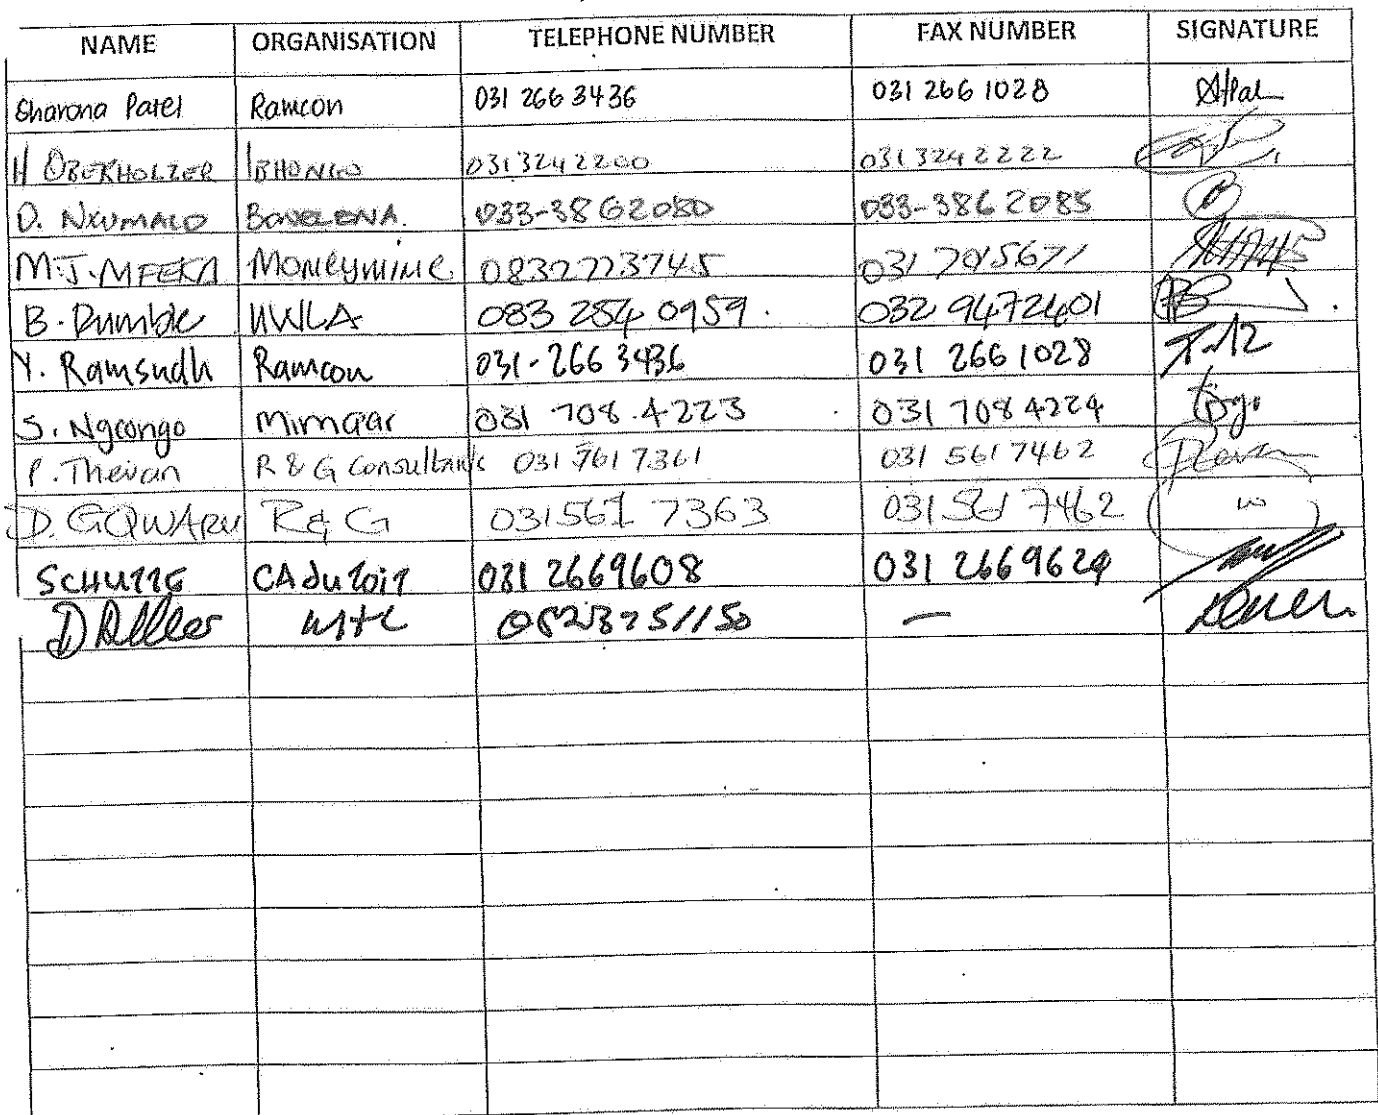 NAME ORGANISATION TELEPHONE NUMBER FAX NUMBER SIGNATURE
Sharona Patel Ramcon 031 266 3436 031 266 1028
H OBERKHOLZER IBHONGO 0313242200 0313242222
D. NXUMALO BONELENA. 033-3862080 033-3862085
M.J.MFEKA Moneymine 0832723745 031 7015671
B. Dumble UWLA 083 254 0959. 032 9472401
Y. Ramsudh Ramcon 031-266 3436 031 266 1028
S. Ngcongo Mimaar 031 708 4223 031 708 4224
P. Thevan R & G Consultants 031 561 7361 031 561 7462
D. GQWARU R & G 031561 7363 031 561 7462
SCHUTTE CA du Toit 031 2669608 031 2669624
D 0823751150 —